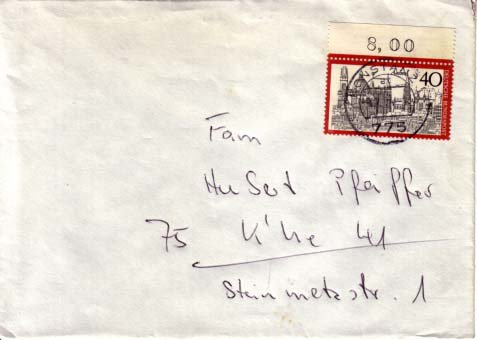 8,00
40
775
Fam
Hubert Pfeiffer
75 K'he 41
Steinmetzstr. 1